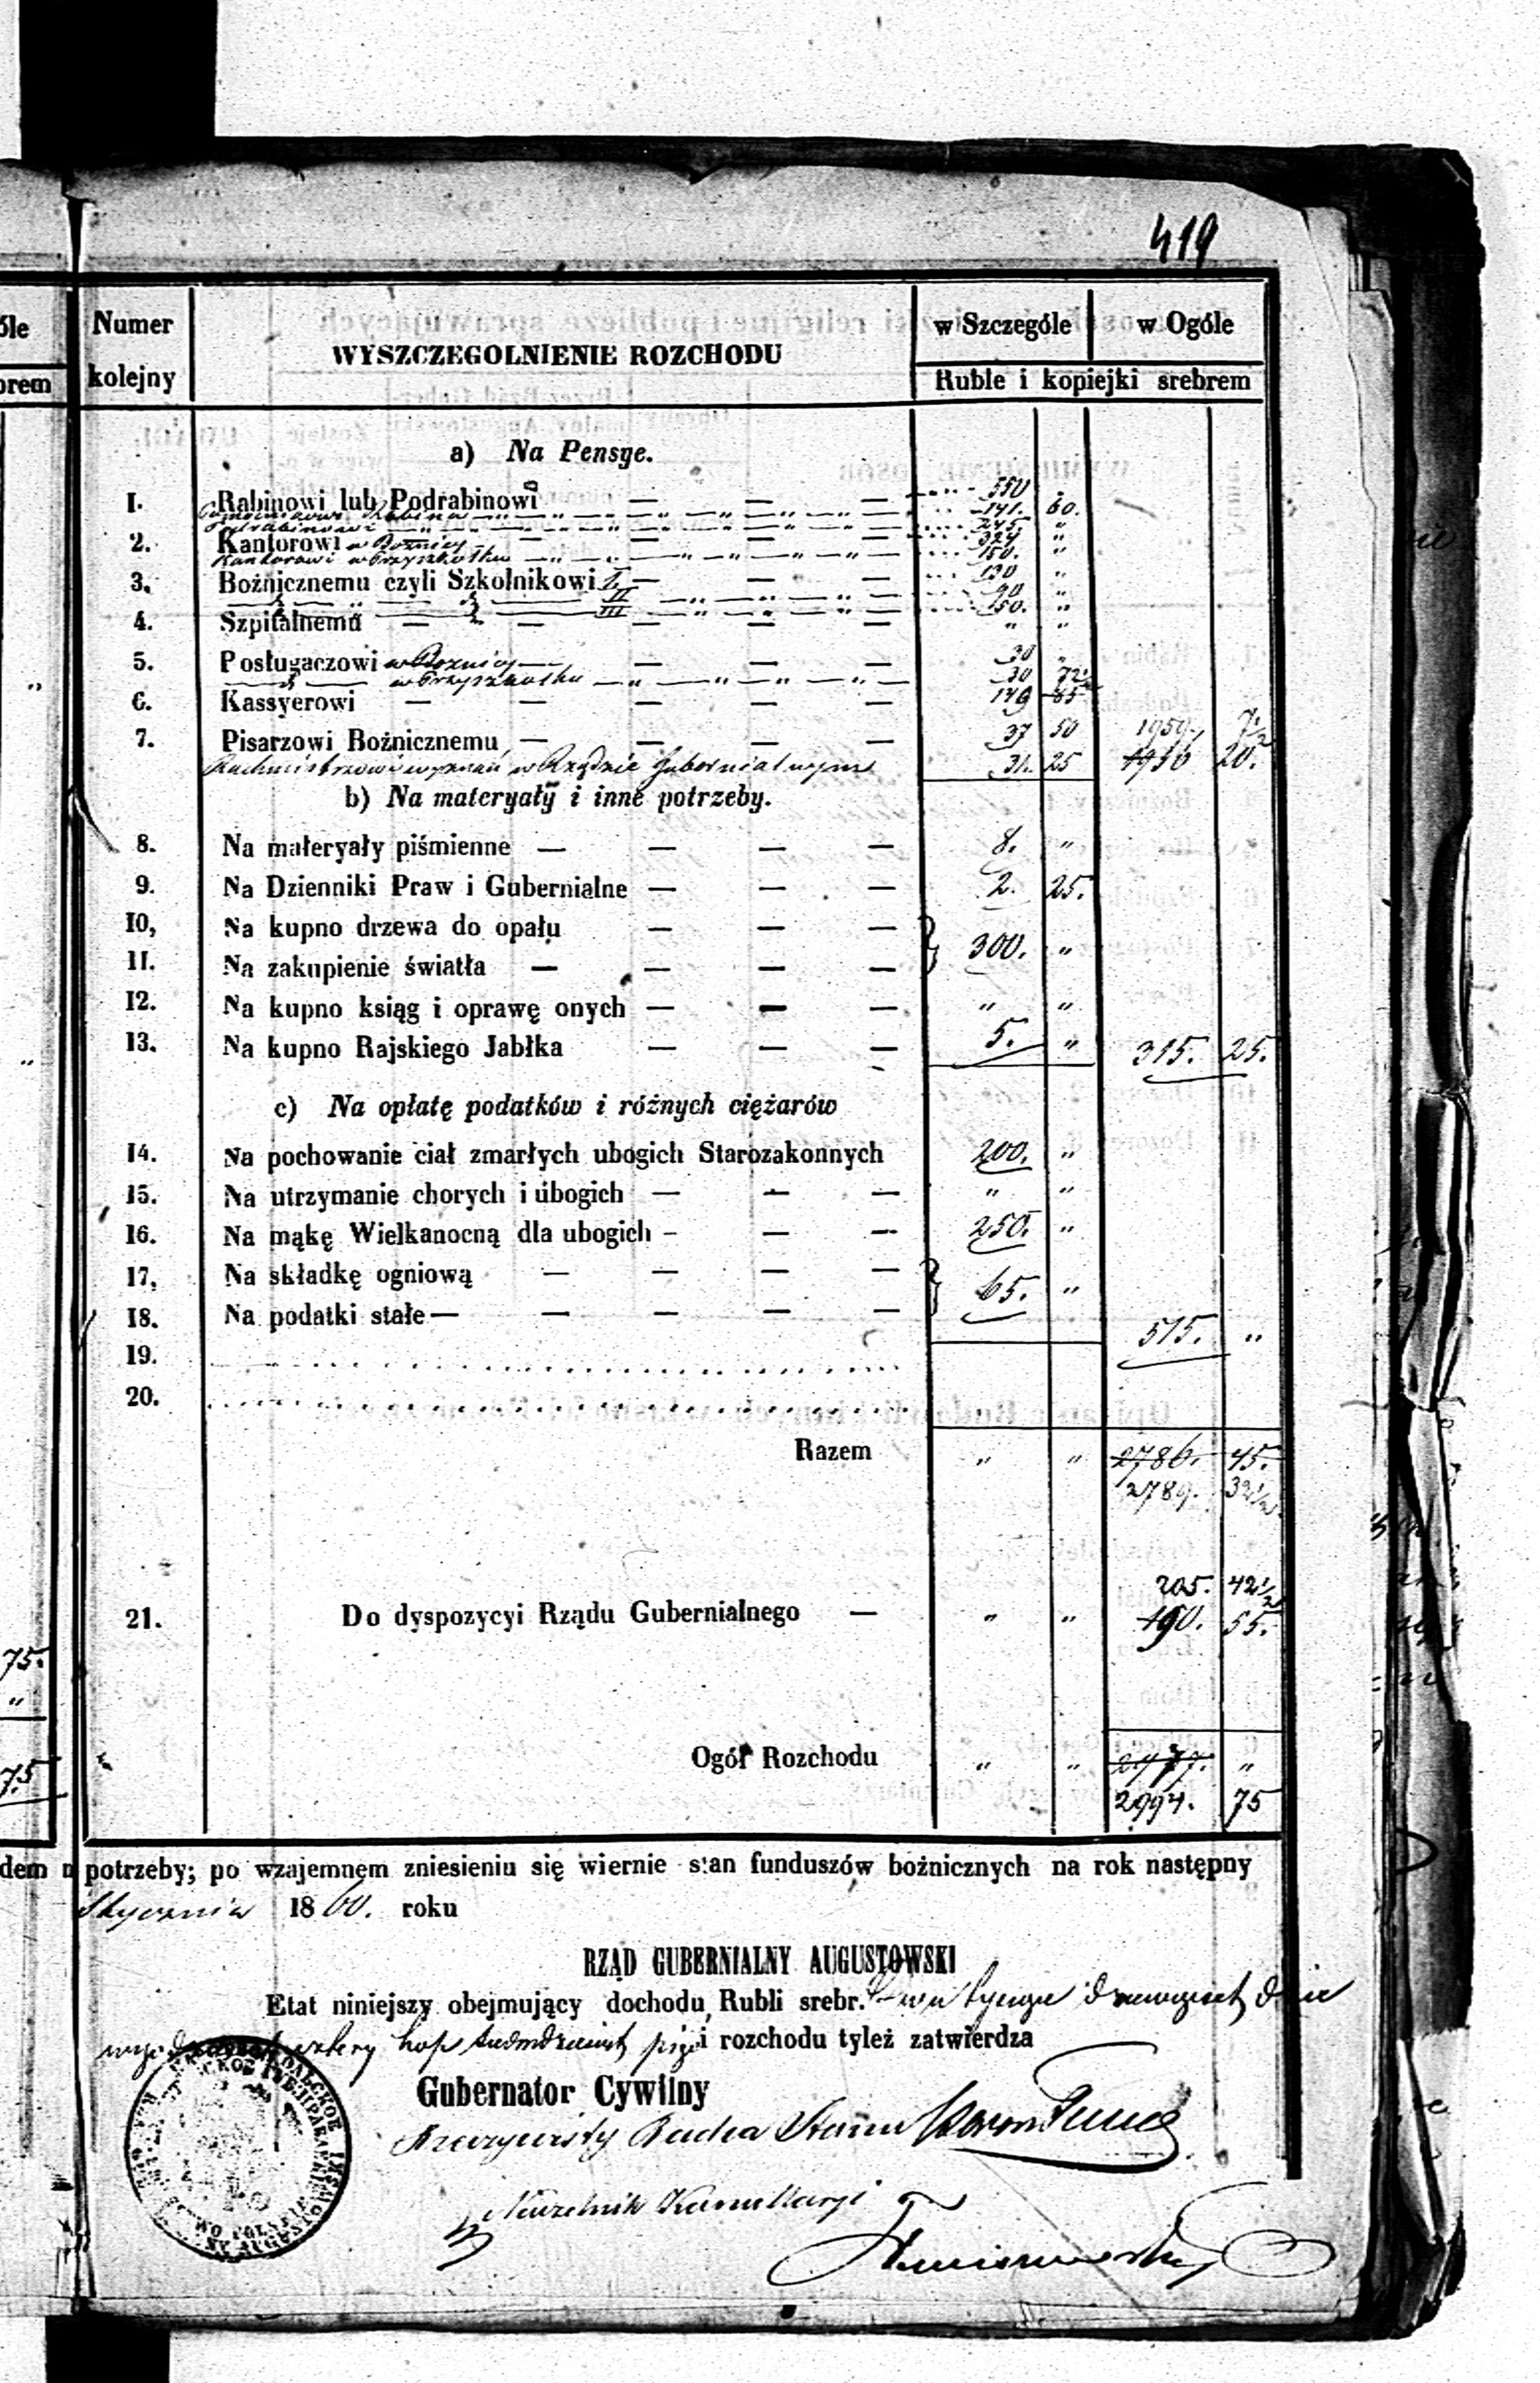 419
óle
brem
Numer kolejny
WYSZCZEGOLNIENIE ROZCHODU
w Szczególe w Ogóle
Ruble i kopiejki srebrem
a) Na Pensye.
1. Rabinowi lub Podrabinowi — — — 550 "
Rabina — " — " — " — 141. 60.
Podrabinowi — " — " — " — 245. "
2. Kantorowi w Bożnicy — — — 324 "
Kantorowi w Przyszkolku — " — " — " — 150. "
3. Bożnicznemu czyli Szkolnikowi I — — — 130 "
II — " — " — " — 90 "
III — " — " — " — 150. "
4. Szpitalnemu — — — — " "
5. Posługaczowi w Bożnicy — — — 30 "
w Przyszkolku — " — " — " — 30 72½
6. Kassyerowi — — — — — 149 85
7. Pisarzowi Bożnicznemu — — — — 37 50 1959. 7½
Rachmistrzowi wyznań w Rządzie Gubernialnym 31. 25 1956 20.
b) Na materyały i inne potrzeby.
8. Na materyały piśmienne — — — — 8. "
9. Na Dzienniki Praw i Gubernialne — — — 2. 25.
10, Na kupno drzewa do opału — — —
11. Na zakupienie światła — — — — 300. "
12. Na kupno ksiąg i oprawę onych — — — " "
13. Na kupno Rajskiego Jabłka — — — 5. " 315. 25.
c) Na opłatę podatków i różnych ciężarów
14. Na pochowanie ciał zmarłych ubogich Starozakonnych 200. "
15. Na utrzymanie chorych i ubogich — — — " "
16. Na mąkę Wielkanocną dla ubogich — — — 250. "
17, Na składkę ogniową — — — —
18. Na podatki stałe — — — — — 65. "
515. "
19.
20.
Razem " " 2786. 45.
2789. 32½
205. 42½
21. Do dyspozycyi Rządu Gubernialnego — " " 190. 55.
75.
"
75
Ogół Rozchodu " " 2977. "
2994. 75
dem n potrzeby; po wzajemnem zniesieniu się wiernie stan funduszów bożnicznych na rok następny
Stycznia 1860. roku
RZĄD GUBERNIALNY AUGUSTOWSKI
Etat niniejszy obejmujący dochodu Rubli srebr. dwa tysiące dziewięćset dzie
więćdziesiąt cztery kop siedmdziesiąt pięć i rozchodu tyleż zatwierdza
Gubernator Cywilny
Rzeczywisty Radca Stanu
Naczelnik Kancellaryi